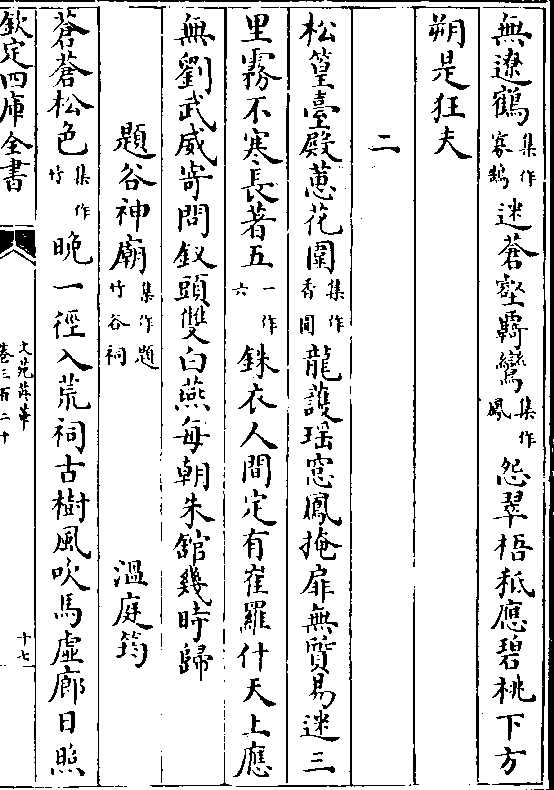 無遼鶴集作寡鵠迷蒼壑羇鸞集作鳳怨翠梧秪應碧桃下方
朔是狂夫
二
松篁臺殿蕙花圍集作香闈龍護瑶窻鳳掩扉無質易迷三
里霧不寒長著五一作六銖衣人間定有崔羅什天上應
無劉武威寄問釵頭雙白燕每朝朱舘幾時歸
題谷神廟集作題竹谷祠 溫庭筠
蒼蒼松色集作竹晩一徑入荒祠古樹風吹馬虚廊日照
欽定四庫全書
文苑英華
卷三百二十
十七